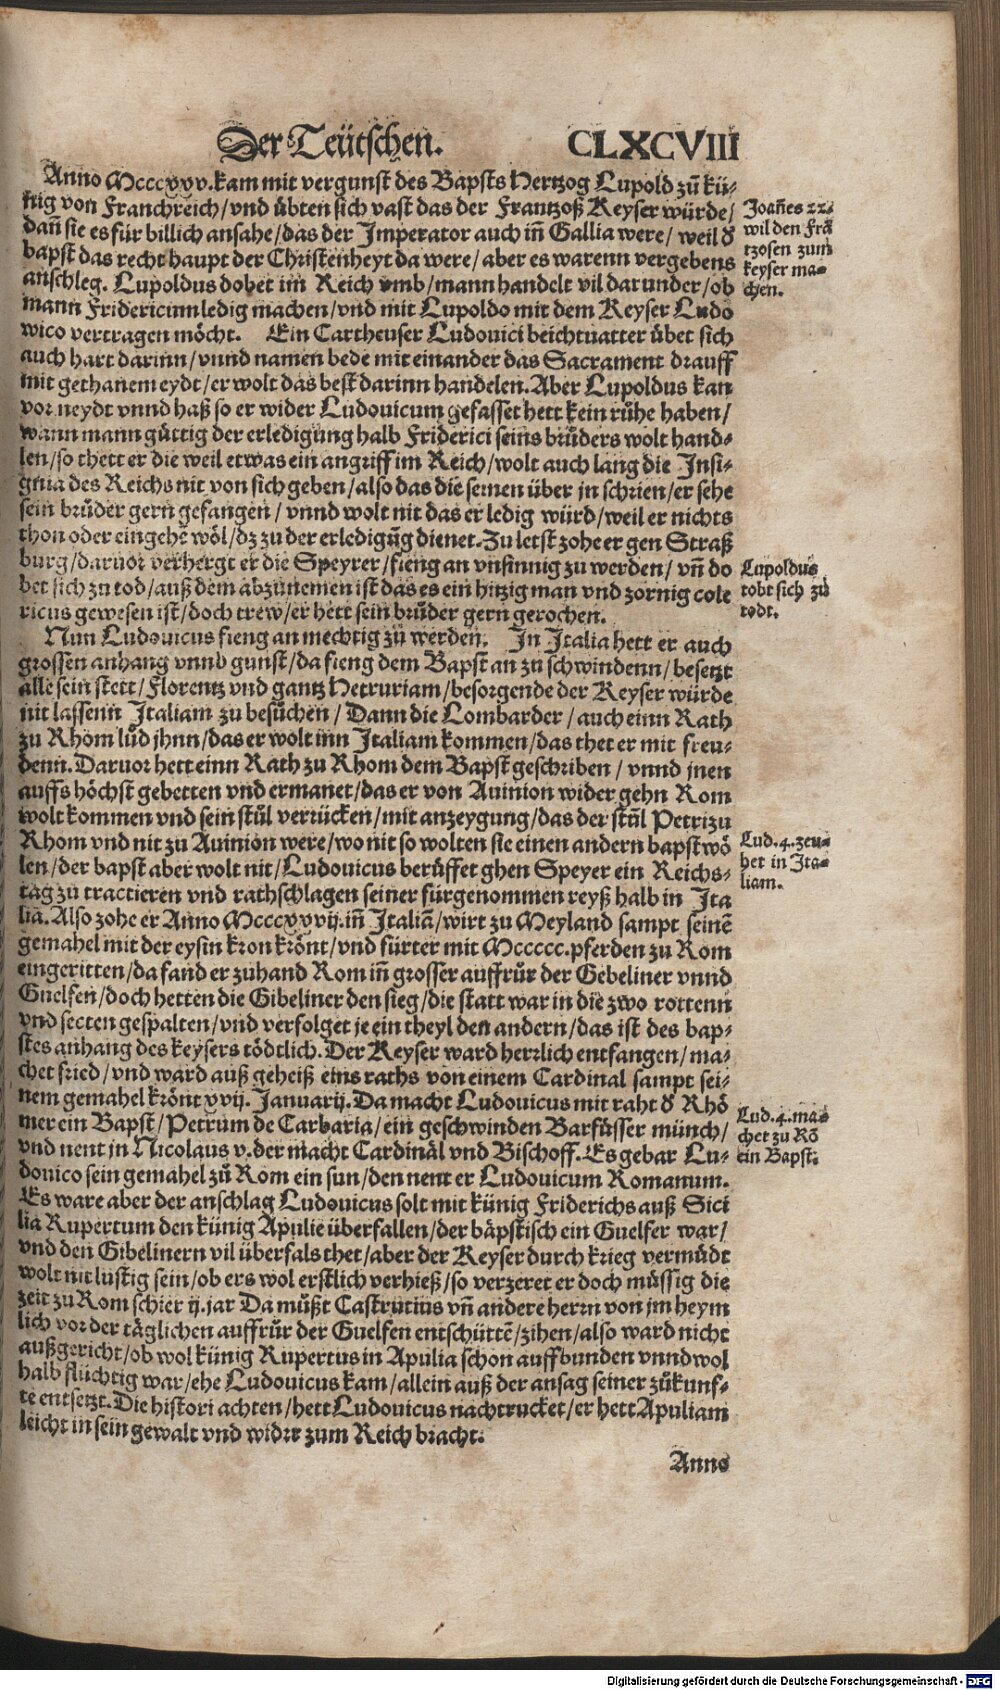 Der Teütschen. CLXCVIII
Anno Mcccxxv. kam mit vergunst des Bapsts Hertzog Lupold zů kü-
nig von Franchreich/vnd übten sich vast das der Frantzoß Keyser würde/
dañ sie es für billich ansahe/das der Imperator auch iñ Gallia were/ weil d
bapst das recht haupt der Christenheyt da were/aber es warenn vergebens
anschleg. Lupoldus dobet im Reich vmb/mann handelt vil darunder/ob
mann Fridericum ledig machen/vnd mit Lupoldo mit dem Keyser Ludo
wico vertragen möcht. Ein Cartheuser Ludouici beichtuatter übet sich
auch hart darinn/vnnd namen bede mit einander das Sacrament drauff
mit gethanem eydt/er wolt das best darinn handelen. Aber Lupoldus kan
vor neydt vnnd haß so er wider Ludouicum gefasset hett kein růhe haben/
wann mann güttig der erledigung halb Friderici seins brůders wolt hand-
len/so thett er die weil etwas ein angriff im Reich/wolt auch lang die Insi-
gnia des Reichs nit von sich geben/also das die seinen über jn schrien/er sehe
sein brůder gern gefangen/vnnd wolt nit das er ledig würd/weil er nichts
thon oder eingehē wöl/dz zu der erledigūg dienet. Zu letst zohe er gen Straß
burg/daruor verhergt er die Speyrer/fieng an vnsinnig zu werden/vñ do
bet sich zu tod/auß dem abzůnemen ist das es ein hitzig man vnd zornig cole
ricus gewesen ist/doch trew/er hett sein brůder gern gerochen.
Nun Ludouicus fieng an mechtig zů werden. In Italia hett er auch
grossen anhang vnnb gunst/da fieng dem Bapst an zu schwindenn/besetzt
alle sein stett/Florentz vnd gantz Hetruriam/besorgende der Keyser würde
nit lassenn Italiam zu besůchen/Dann die Lombarder/auch einn Rath
zu Rhom lůd jhnn/das er wolt inn Italiam kommen/das thet er mit freu-
denn. Daruor hett einn Rath zu Rhom dem Bapst geschriben/vnnd jnen
auffs höchst gebetten vnd ermanet/das er von Auinion wider gehn Rom
wolt kommen vnd sein stůl verrücken/mit anzeygung/das der stůl Petri zu
Rhom vnd nit zu Auinion were/wo nit so wolten sie einen andern bapst wö
len/der bapst aber wolt nit/Ludouicus berůffet ghen Speyer ein Reichs-
tag zu tractieren vnd rathschlagen seiner fürgenommen reyß halb in Ita
lia. Also zohe er Anno Mcccxxvij. iñ Italiā/wirt zu Meyland sampt seinē
gemahel mit der eysin kron krönt/vnd fürter mit Mccccc. pferden zu Rom
eingeritten/da fand er zuhand Rom iñ grosser auffrůr der Gebeliner vnnd
Guelfen/doch hetten die Gibeliner den sieg/die statt war in die zwo rottenn
vnd secten gespalten/vnd verfolget je ein theyl den andern/das ist des bap-
stes anhang des keysers tödtlich. Der Keyser ward herrlich entfangen/ma-
chet fried/vnd ward auß geheiß eins raths von einem Cardinal sampt sei-
nem gemahel krönt xvij. Januarij. Da macht Ludouicus mit raht d Rhö
mer ein Bapst/Petrum de Carbaria/ein geschwinden Barfůsser münch/
vnd nent jn Nicolaus v. der macht Cardinäl vnd Bischoff. Es gebar Lu-
douico sein gemahel zů Rom ein sun/den nent er Ludouicum Romanum.
Es ware aber der anschlag Ludouicus solt mit künig Friderichs auß Sici
lia Rupertum den künig Apulie überfallen/der bäpstisch ein Guelfer war/
vnd den Gibelinern vil überfals thet/aber der Keyser durch krieg vermůdt
wolt nit lustig sein/ob ers wol erstlich verhieß/so verzeret er doch müssig die
zeit zu Rom schier ij. jar Da můßt Castrutius vñ andere herrn von jm heym
lich vor der täglichen auffrůr der Guelfen entschüttē/zihen/also ward nicht
außgericht/ob wol künig Rupertus in Apulia schon auffbunden vnnd wol
halb flüchtig war/ehe Ludouicus kam/allein auß der ansag seiner zůkunf-
te entsetzt. Die histori achten/hett Ludouicus nachtrucket/er hett Apuliam
leicht in sein gewalt vnd widrr zum Reich bracht.
Anno
Joañes 22.
wil den Frā
tzosen zum
keyser ma-
chen.
Lupoldus
tobt sich zů
todt.
Lud. 4. zeu-
het in Ita-
liam.
Lud. 4. ma-
chet zu Rō
ein Bapst.
Digitalisierung gefördert durch die Deutsche Forschungsgemeinschaft - DFG